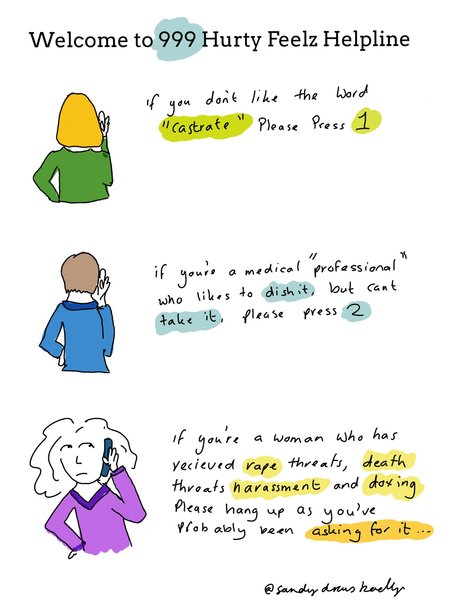 Welcome to 999 Hurty Feelz Helpline
if you don't like the word
"castrate" Please Press 1
if you're a medical "professional"
who likes to dish it, but cant
take it, please press 2
if you're a woman who has
recieved rape threats, death
threats harassment and doxing
Please hang up as you've
probably been asking for it...